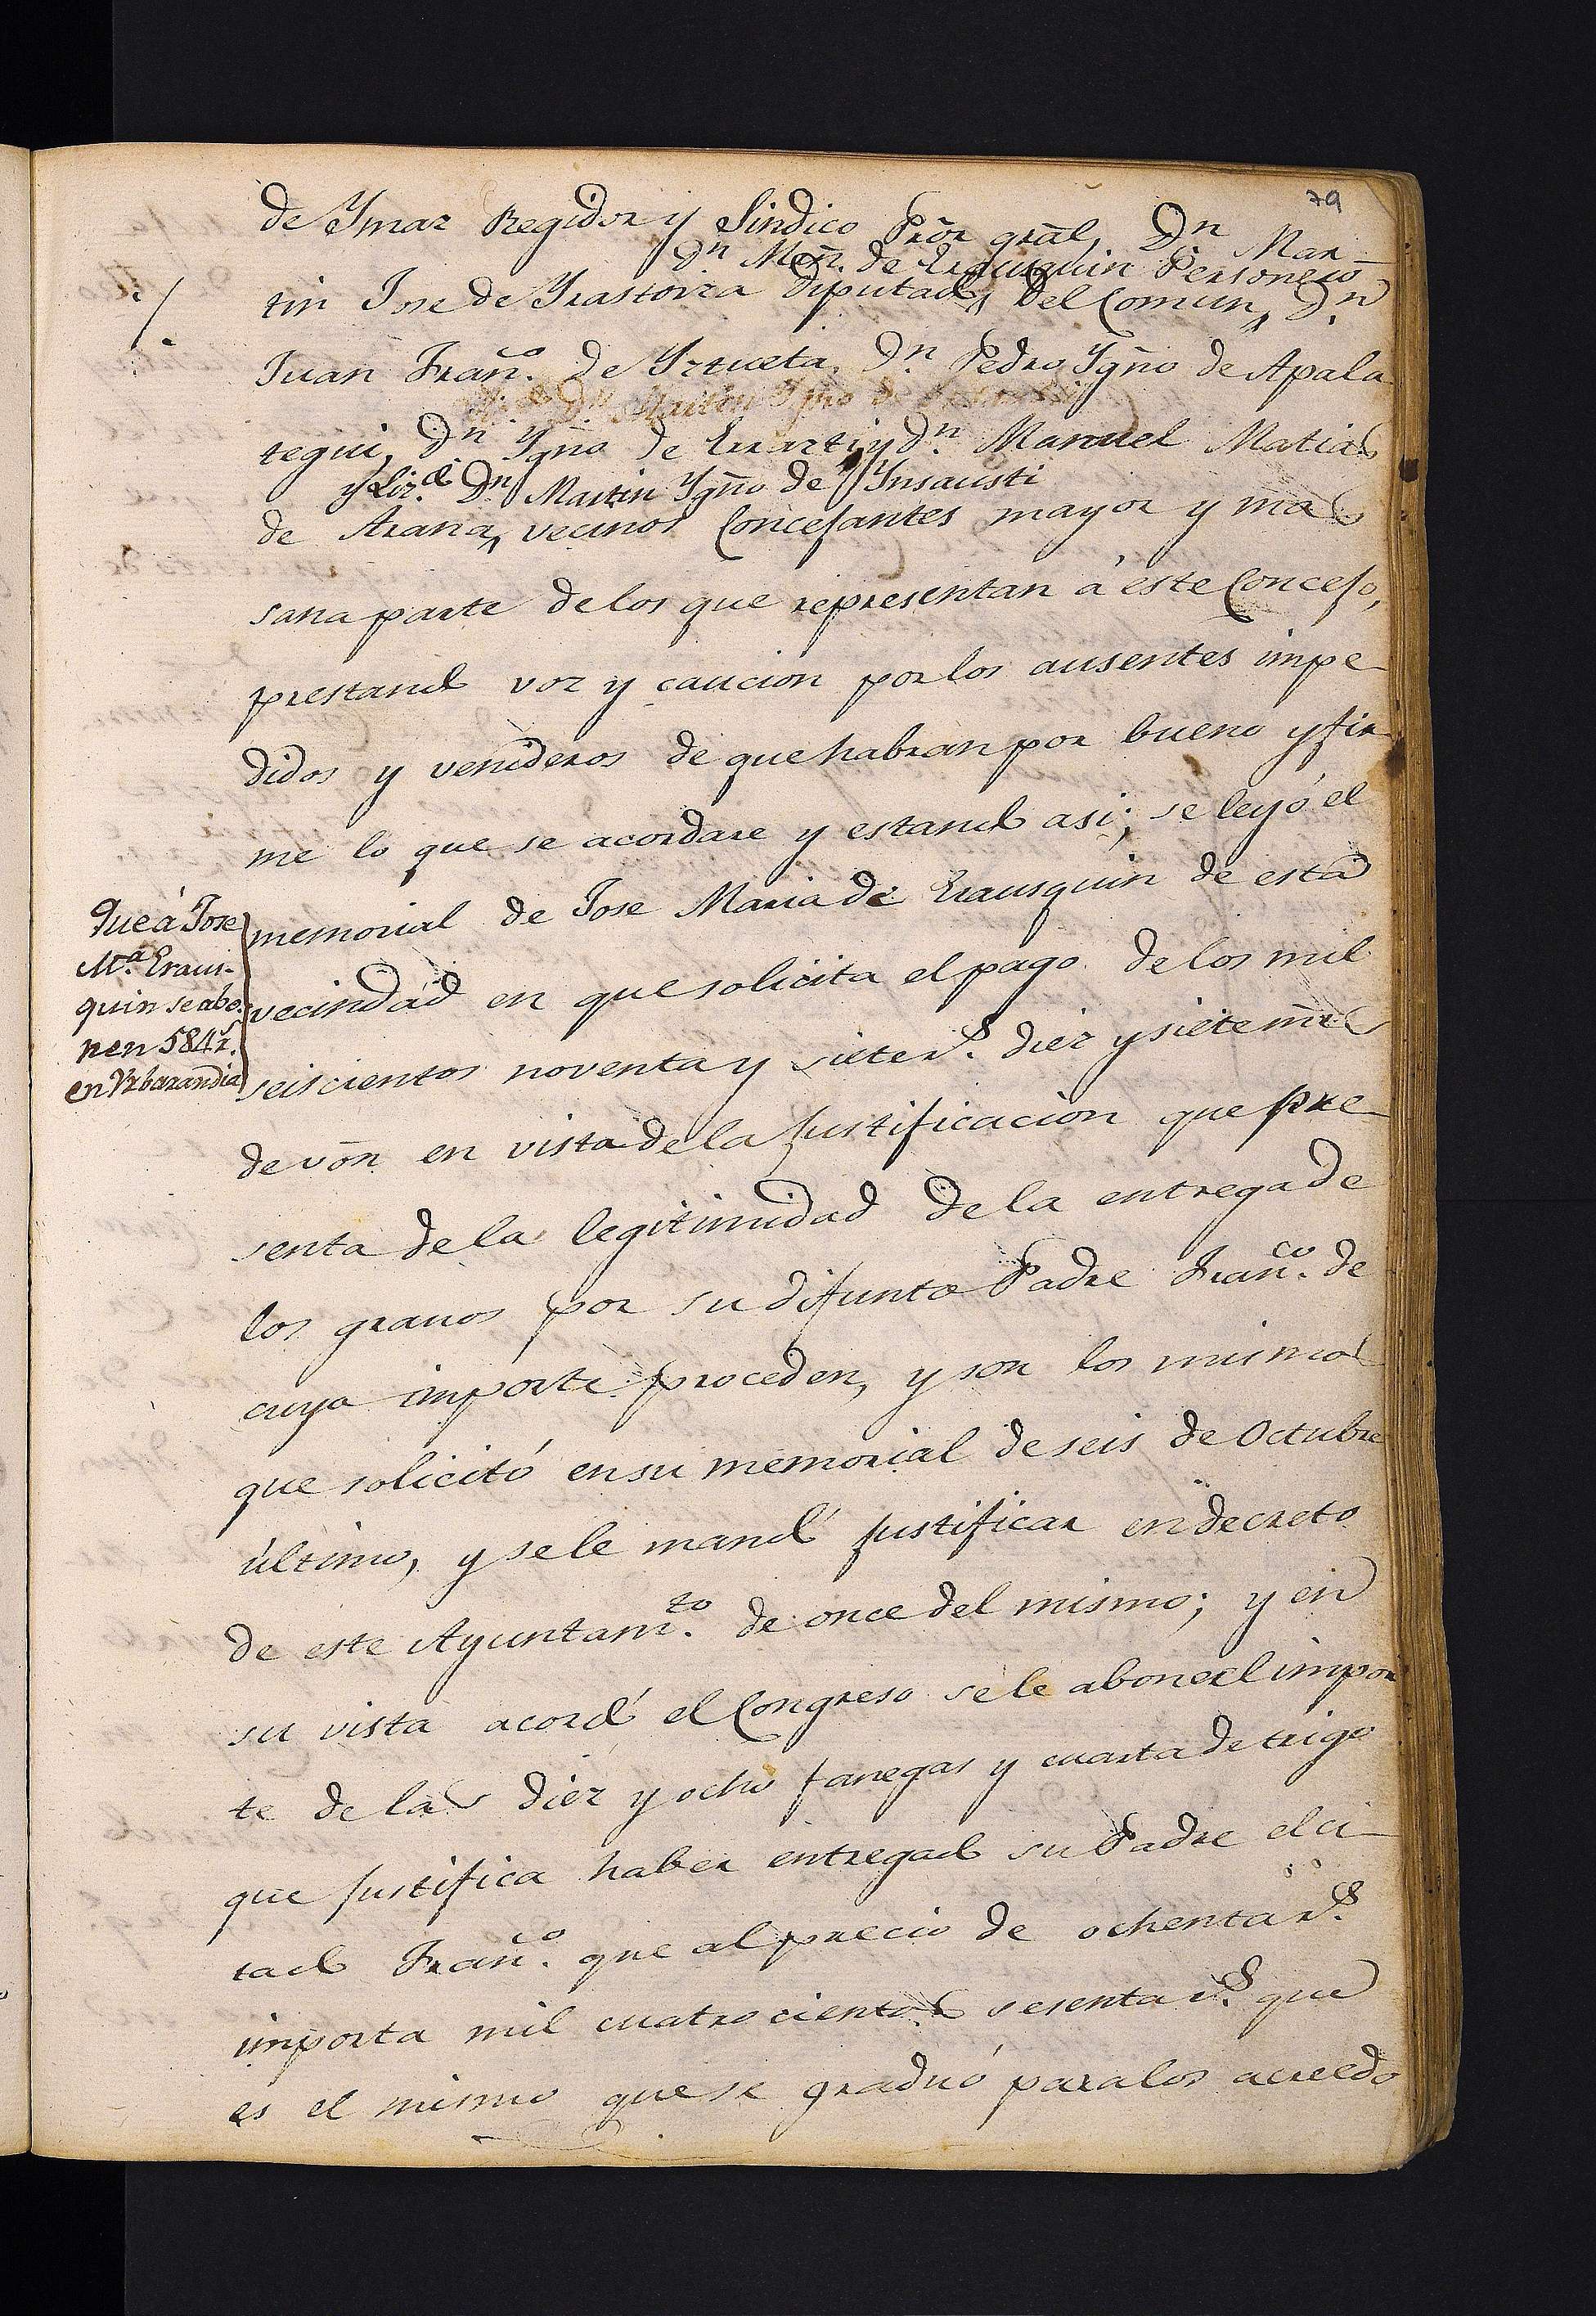 79
de Ymaz Regidor y Sindico Prõr grãl, Dn Mar-
Dn Mñ. de Erausquin Personero
tin Jose de Yrastorza Diputado, del Comun, Dn
Juan Frañco. de Yztueta, Dn. Pedro Ygño de Apala
Dn Martin Ygño de
tegui, Dn Ygño de Errazti, y Dn. Manuel Matias
y Lizdo. Dn Martin Ygño de Ynsausti
de Arana, vecinos Concejantes mayor y mas
sana parte delos que representan á este Concejo,
prestando voz y caucion por los ausentes impe-
didos y venideros de que habran por bueno y fir
me lo que se acordare y estando asi; se leyó el
memorial de Jose Maria de Erausquin de esta
vecindad en que solicita el pago delos mil
seiscientos noventa y siete rs. diez y siete mrs
de võn en vista dela justificacion que pre-
senta dela legitimidad dela entrega de
los granos por su difunto Padre Frañco. de
cuyo importe proceden, y son los mismos
que solicitó en su memorial de seis de Octubre
ultimo, y sele mandó justificar en decreto
de este Ayuntamto. de once del mismo; y en
su vista acordó el Congreso sele abone el impor
te de las diez y ocho fanegas y cuarta de trigo
que justifica haber entregado su Padre el ci-
tado Frañco. que al precio de ochenta rs.
importa mil cuatrocientos sesenta rs. que
es el mismo que se graduó para los acreedo
Que á Jose
Ma. Eraus-
quin se abo-
nen 584 r.
en Vrbarandia